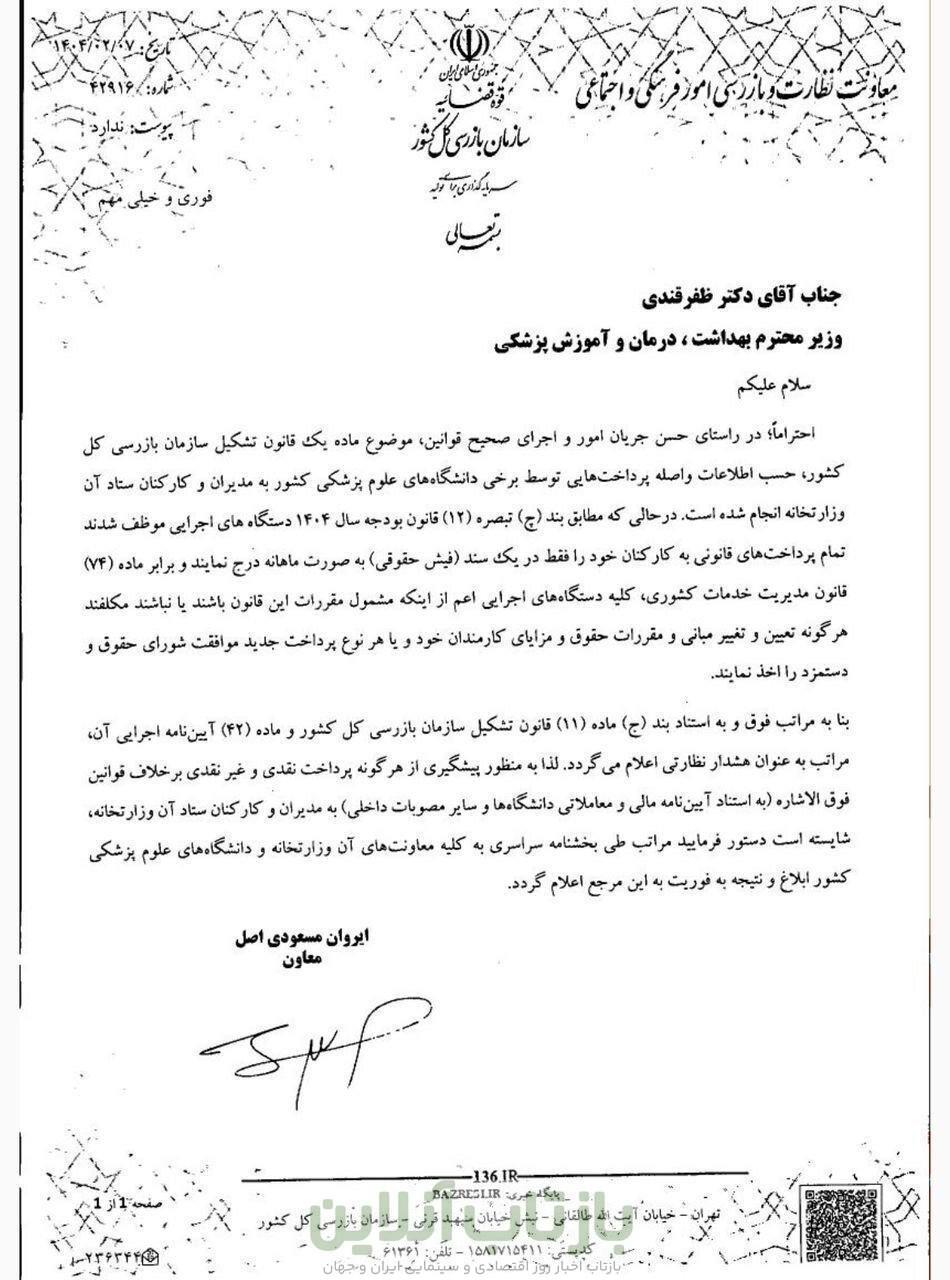 معاونت نظارت و بازرسی امور فرهنگی و اجتماعی
جمهوری اسلامی ایران
قوه قضائیه
سازمان بازرسی کل کشور
سرمایه‌گذاری برای تولید
بسمه تعالی
تاریخ: ۱۴۰۴/۰۲/۰۷
شماره: ۴۲۹۱۶
پیوست: ندارد
فوری و خیلی مهم
جناب آقای دکتر ظفرقندی
وزیر محترم بهداشت، درمان و آموزش پزشکی
سلام علیکم
احتراماً؛ در راستای حسن جریان امور و اجرای صحیح قوانین، موضوع ماده یک قانون تشکیل سازمان بازرسی کل
کشور، حسب اطلاعات واصله پرداخت‌هایی توسط برخی دانشگاه‌های علوم پزشکی کشور به مدیران و کارکنان ستاد آن
وزارتخانه انجام شده است. درحالی که مطابق بند (چ) تبصره (۱۲) قانون بودجه سال ۱۴۰۴ دستگاه های اجرایی موظف شدند
تمام پرداخت‌های قانونی به کارکنان خود را فقط در یک سند (فیش حقوقی) به صورت ماهانه درج نمایند و برابر ماده (۷۴)
قانون مدیریت خدمات کشوری، کلیه دستگاه‌های اجرایی اعم از اینکه مشمول مقررات این قانون باشند یا نباشند مکلفند
هرگونه تعیین و تغییر مبانی و مقررات حقوق و مزایای کارمندان خود و یا هر نوع پرداخت جدید موافقت شورای حقوق و
دستمزد را اخذ نمایند.
بنا به مراتب فوق و به استناد بند (ج) ماده (۱۱) قانون تشکیل سازمان بازرسی کل کشور و ماده (۴۲) آیین‌نامه اجرایی آن،
مراتب به عنوان هشدار نظارتی اعلام می‌گردد. لذا به منظور پیشگیری از هرگونه پرداخت نقدی و غیر نقدی برخلاف قوانین
فوق الاشاره (به استناد آیین‌نامه مالی و معاملاتی دانشگاه‌ها و سایر مصوبات داخلی) به مدیران و کارکنان ستاد آن وزارتخانه،
شایسته است دستور فرمایید مراتب طی بخشنامه سراسری به کلیه معاونت‌های آن وزارتخانه و دانشگاه‌های علوم پزشکی
کشور ابلاغ و نتیجه به فوریت به این مرجع اعلام گردد.
ایروان مسعودی اصل
معاون
136.IR
پایگاه خبری: BAZRESI.IR
تهران - خیابان آیت الله طالقانی - نبش خیابان شهید قرنی - سازمان بازرسی کل کشور
کدپستی: ۱۵۸۱۷۱۵۴۱۱ - تلفن: ۶۱۳۶۱
صفحه 1 از 1
۱-۲۳۶۳۴۴
بازتاب آنلاین
بازتاب اخبار روز اقتصادی و سینمایی ایران وجهان